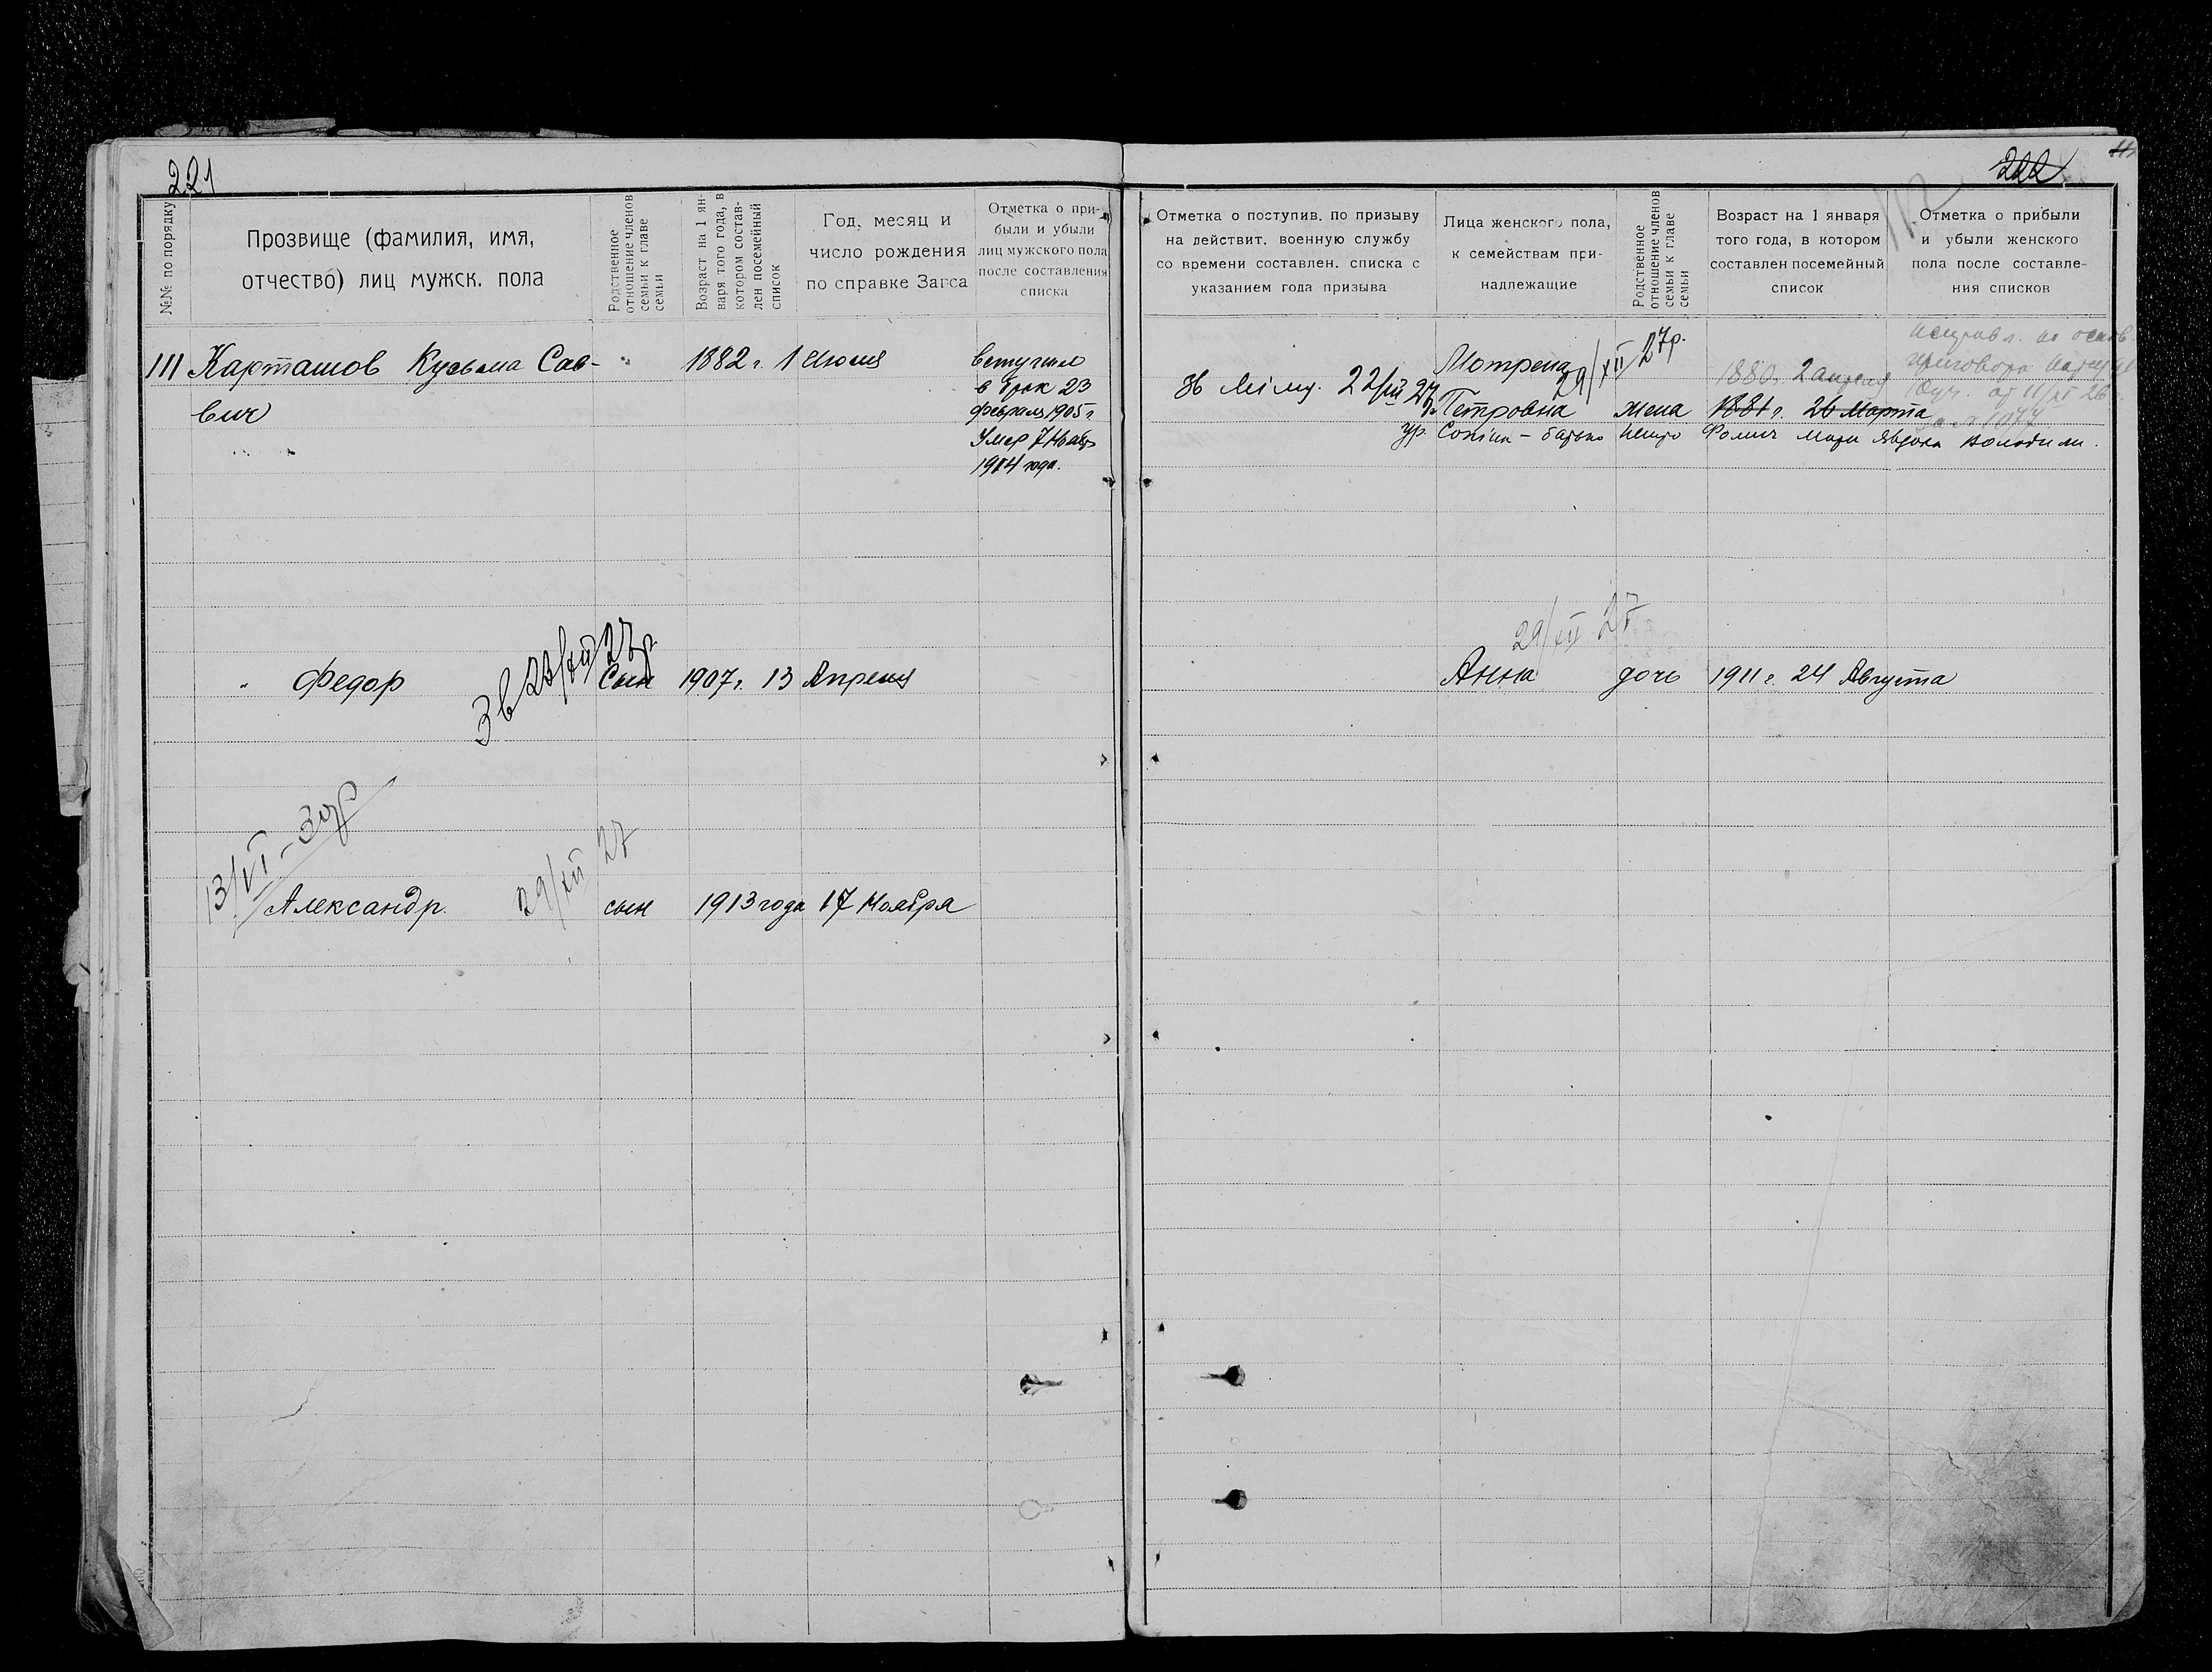 221
№№ по порядку
Прозвище (фамилия, имя,
отчество) лиц мужск. пола
Родственное
отношение членов
семьи к главе
семьи
Возраст на 1 ян-
варя того года, в
котором состав-
лен посемейный
список
Год, месяц и
число рождения
по справке Загса
Отметка о при-
были и убыли
лиц мужского пола
после составления
списка
111 Карташов Кузьма Сав- " 1882 г. 1 Июля
вич
вступил
в брак 23
февраля 1905 г
Умер 7 Нояб
1914 года.
" Федор Зв 23/XII 27р. Сын 1907 г. 13 Апреля
13/VI - 30р
Александр 29/XII 27 сын 1913 года 17 Ноября
222
112
Отметка о поступив. по призыву
на действит. военную службу
со времени составлен. списка с
указанием года призыва
Лица женского пола,
к семействам при-
надлежащие
Родственное
отношение членов
семьи к главе
семьи
Возраст на 1 января
того года, в котором
составлен посемейный
список
Отметка о прибыли
и убыли женского
пола после составле-
ния списков
Мотрена 29/XII 27р.
22/XII 27
1880 г. 2 апреля
Петровна жена 1881 г. 26 Марта
исправл. на основ
приговора
от 11/XI 26
батько Фомич мати Явдоха
29/XII 27
Анна дочь 1911 г. 24 Августа